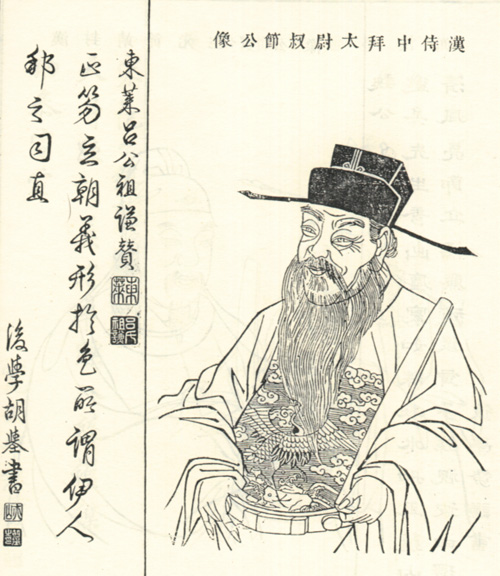 漢侍中拜太尉叔節公像
東萊呂公祖謙贊
東萊
呂氏祖謙
正笏立朝義形於色所謂伊人
邦之司直
後學胡書